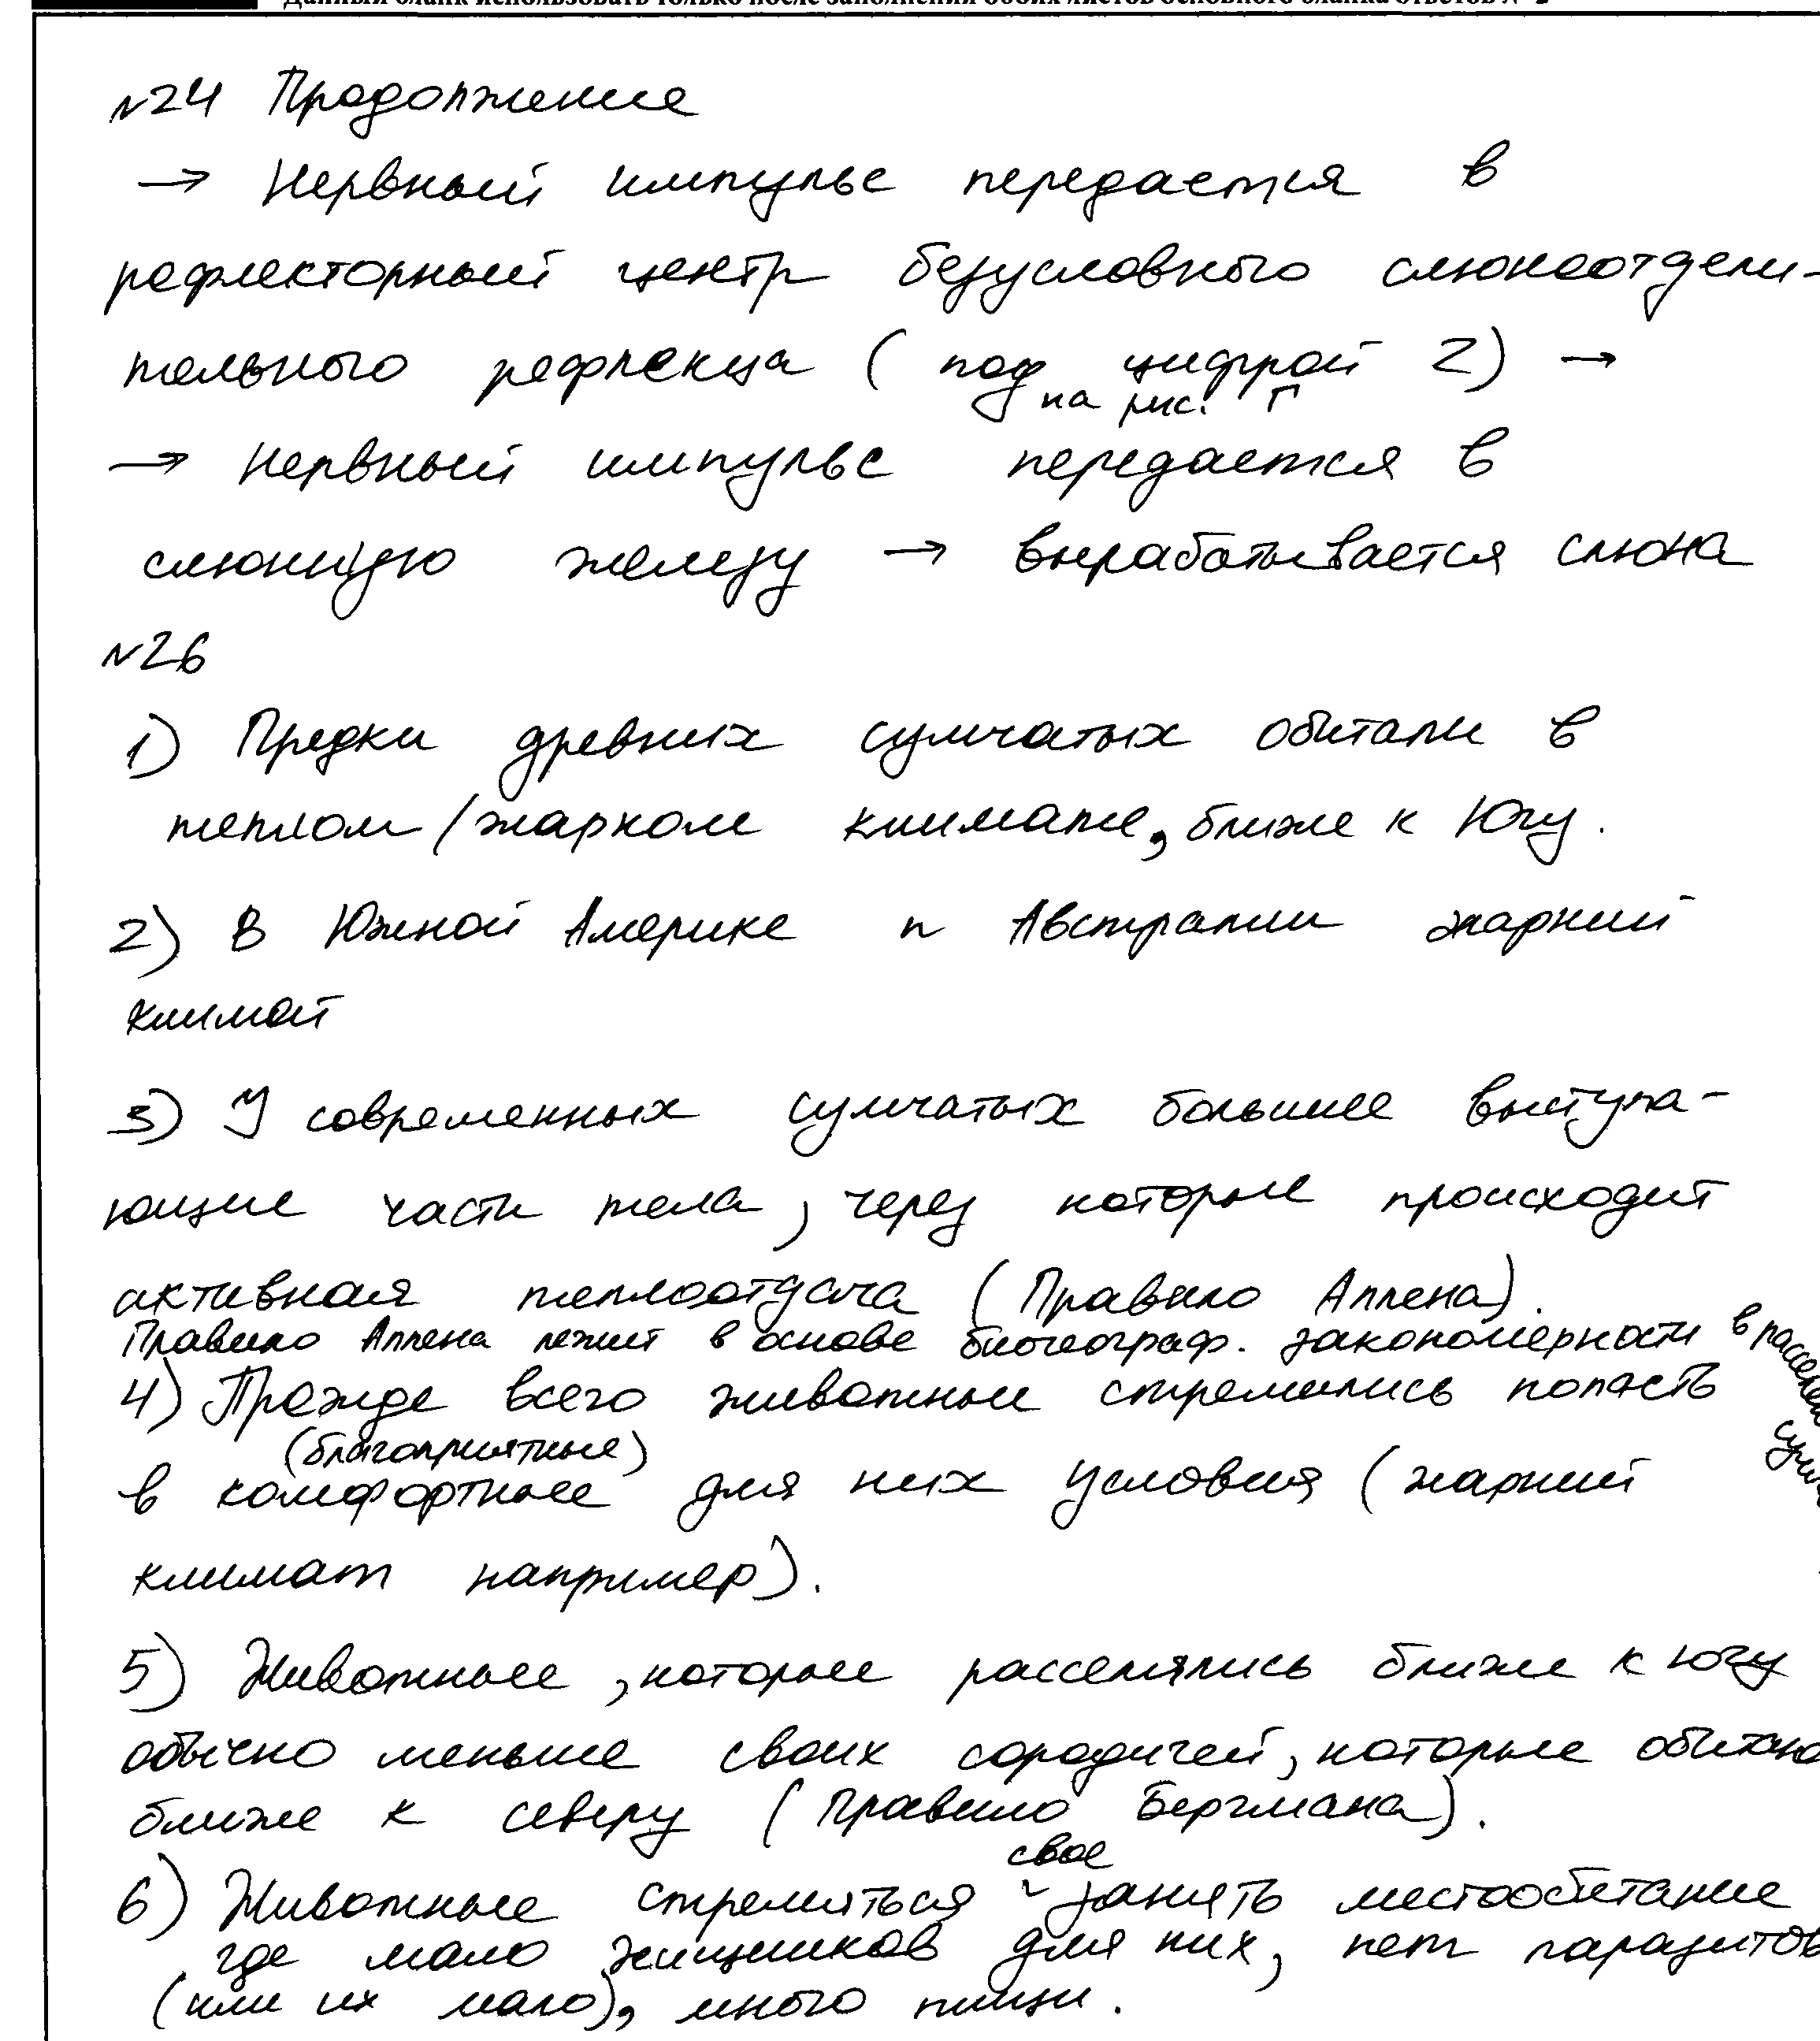 Данный бланк использовать только после заполнения обоих листов основного бланка ответов № 2
№24 Продолжение
→ Нервный импульс передается в
рефлекторный центр безусловного слюноотдели-
тельного рефлекца (под цифрой 2) →
на рис. Г
→ нервный импульс передается в
слюнную железу → вырабатывается слюна
№26
1) Предки древних сумчатых обитали в
теплом/жарком климате, ближе к Югу.
2) В Южной Америке и Австралии жаркий
климат
3) У современных сумчатых большие выступа-
ющие части тела, через которые происходит
активная теплоотдача (Правило Аллена).
Правило Аллена лежит в основе биогеограф. закономерности в
4) Прежде всего животные стремились попасть
(благоприятные)
в комфортные для них условия (жаркий
климат например).
5) Животные, которые расселялись ближе к югу
обычно меньше своих сородичей, которые
ближе к северу (Правило Бергмана).
свое
6) Животные стремиться занять местообитание
где мало хищников для них, нет паразитов
(или их мало), много пищи.